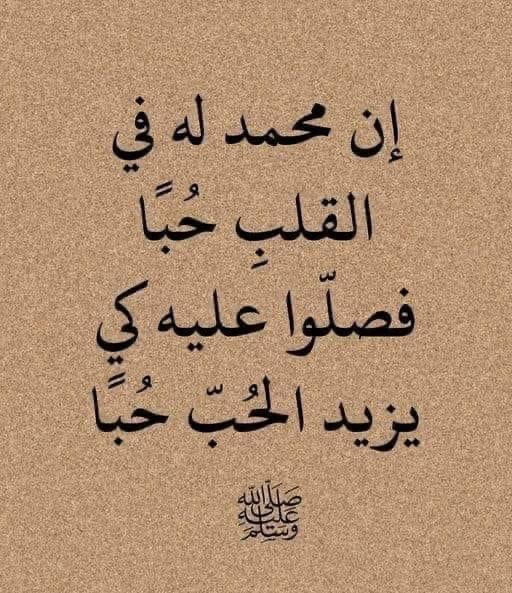 إن محمد له في
القلبِ حُبًا
فصلّوا عليه كي
يزيد الحُبّ حُبًا
صَلَّى اللّٰه
عَلَيْهِ
وَسَلَّمَ